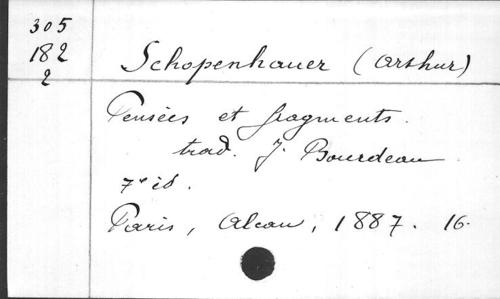 305
182
2
Schopenhauer (Arthur)
Pensées et fragments.
trad. J. Bourdeau
7e éd.
Paris, Alcan, 1887. 16.